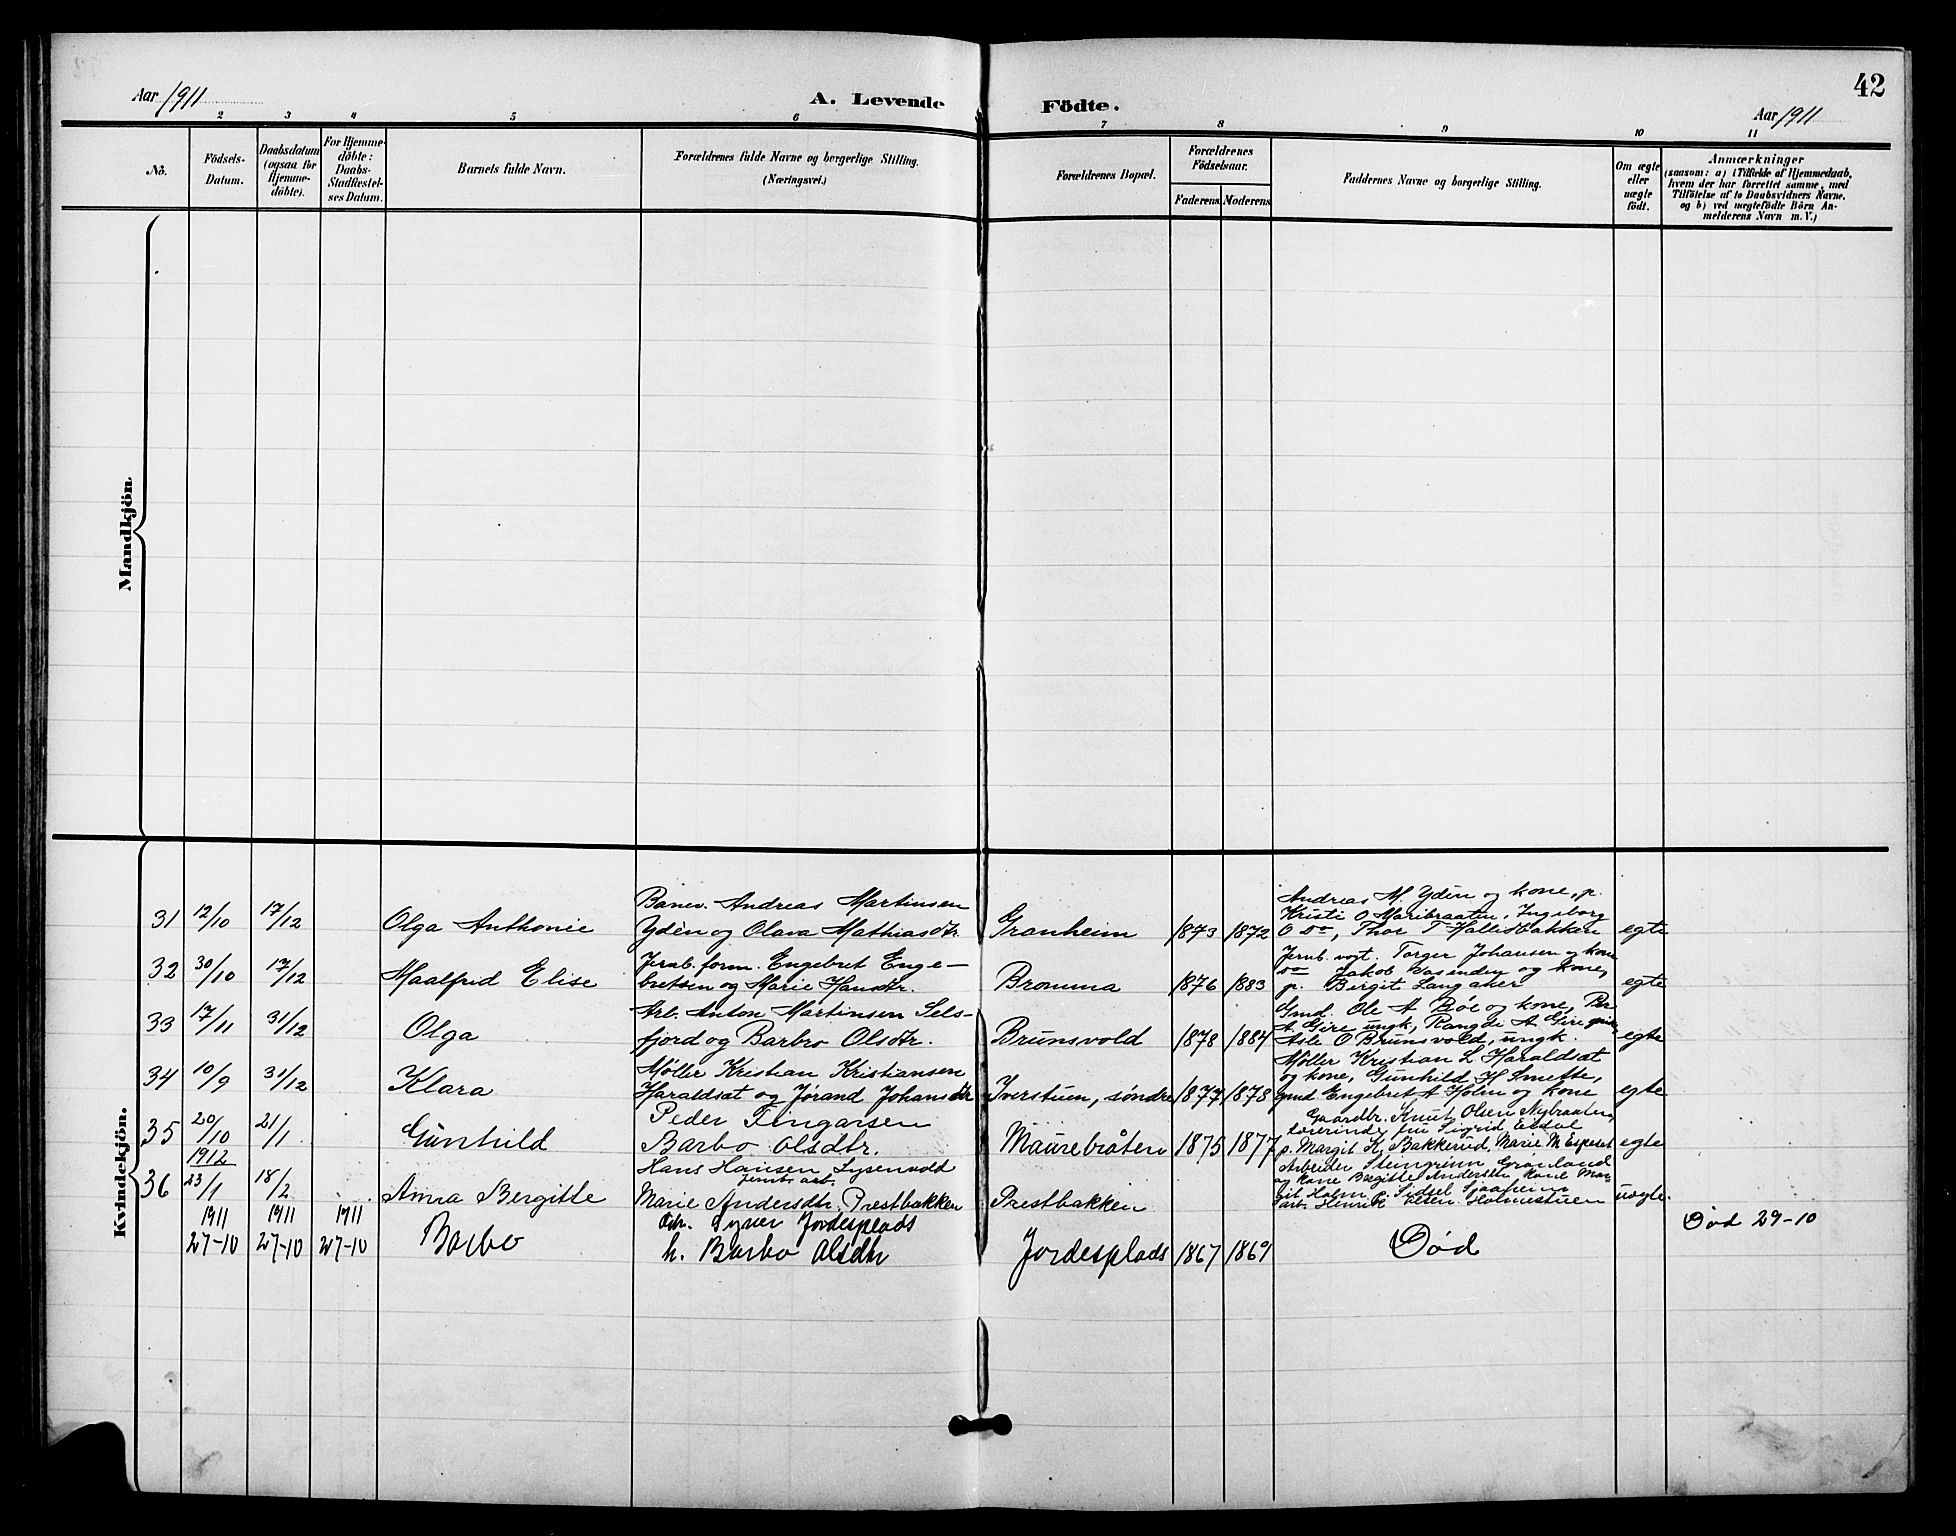 42
Aar 1911
A. Levende Födte.
Aar 1911
2 3 4 5 6 7 8 9 10 11
No.
Födsels-Datum.
Daabsdatum (ogsaa for Hjemme-döbte).
For Hjemme-döbte: Daabs-Stadfæstel-ses Datum.
Barnets fulde Navn.
Forældrenes fulde Navne og borgerlige Stilling.
(Næringsvei.)
Forældrenes Bopæl.
Forældrenes Födselsaar.
Faderens Moderens
Faddernes Navne og borgerlige Stilling.
Om ægte eller uægte födt.
Anmærkninger
(saasom: a) i Tilfælde af Hjemmedaab,
hvem der har forrettet samme, med
Tilföielse af to Daabsvidners Navne.
og b) ved uægtefödte Börn An-
melderens Navn m. V.)
Mandkjön.
Kvindekjön.
31 12/10 17/12 Olga Anthonie
Banev. Andreas Martinsen
Ydèn og Olava Mathiasdtr.
Granheim 1873 1872
Andreas M. Ydèn og kone, p.
Kristi O Maribraaten, Ingeborg
O do, Thor T Hallisbakken
egte
32 30/10 17/12 Maalfrid Elise
Jernb. form. Engebret Enge-
bretsen og Marie Hansdtr.
Bromma 1876 1883
Jernb. vogt. Torger Johansen og kone
do Jakob Vasenden og kone,
p. Birgit Langaker
egte
33 17/11 31/12 Olga
Arb. Anton Martinsen Sels-
fjord og Barbro Olsdtr.
Brunsvold 1878 1884
Gmd. Ole A Bøe og kone, Per
A Gire ungk, Rangdi A Gire pige,
Asle O Brunsvold, ungk.
egte
34 10/9 31/12 Klara
Møller Kristian Kristiansen
Haraldsat og Jørand Johansdtr
Iverstuen, søndre 1877 1878
Møller Kristian L Haraldsat
og kone, Gunhild H Smette,
gmd Engebret A Holm og kone
egte
35 20/10 21/1 Gunhild
Peder Tingarsen
Barbo Olsdtr.
Maurebråten 1875 1877
Gaardbr. Knut Olsen Nybraaten,
lærerinde fru Sigrid Eidsal
p. Margit K. Bakkerud, Marie M Espeset
egte
1912
36 23/1 18/2 Anna Bergitte
Hans Hansen Lysenvold
jernb. arb.
Marie Andersdtr. Prestbakken
Prestbakken
Arbeider Steingrim Grønland
og kone Birgitte Andersen Kone Mar-
git Holm p. Sidsel Sjaaheim
arb. Henrik Olsen Holmestuen
uegte.
1911 1911 1911
27-10 27-10 27-10 Barbo
Arb. Syver Jordesplads
h. Barbo Olsdtr
Jordesplads 1867 1869
Død
Død 29-10